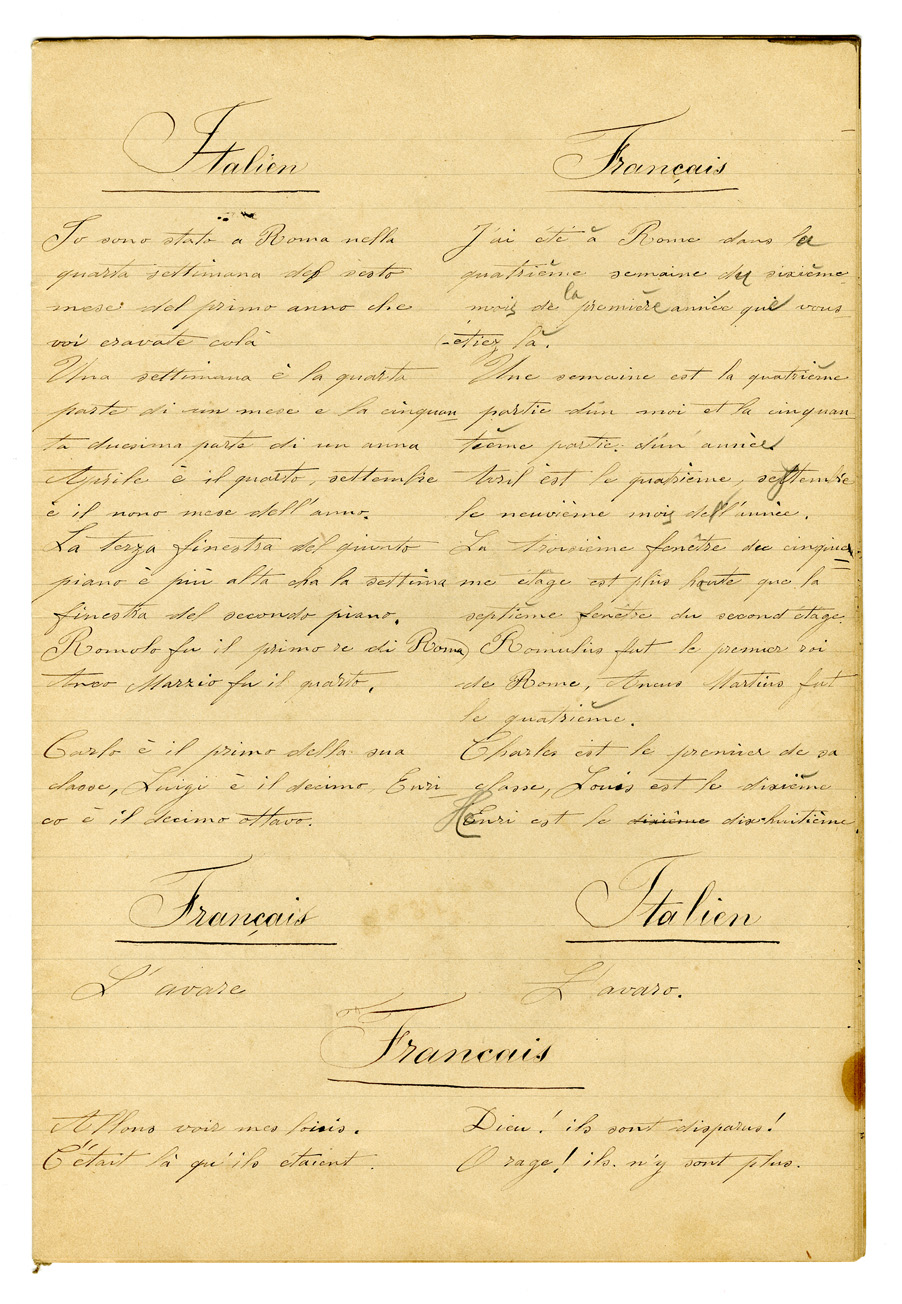 Italien
Io sono stato a Roma nella
quarta settimana del sesto
mese del primo anno che
voi eravate colà
Una settimana è la quarta
parte di un mese e la cinquan
ta duesima parte di un anna
Aprile è il quarto, settembre
è il nono mese dell'anno.
La terza finestra del quinto
piano è più alta cha la settima
finestra del secondo piano.
Romolo fu il primo re di Roma
Anco Marzio fu il quarto.
Carlo è il primo della sua
classe, Luigi è il decimo, Enri
co è il decimo ottavo.
Français
J'ai été à Rome dans la
quatrième semaine du sixième
mois de la première année que vous
étiez là.
Une semaine est la quatrième
partie d'un moi et la cinquan
tième partie d'un année
Avril est le quatrième, septembre
le neuvième mois de l'année.
La troisième fenêtre du cinquiè
me étage est plus haute que la
septième fenêtre du second etage
Romulus fut le premier roi
de Rome, Ancus Martius fut
le quatrième.
Charles est le premier de sa
classe, Louis est le dixième
Henri est le dixième dix-huitième.
Français
L'avare
Italien
L'avaro.
Francais
Allons voir mes louis.
C'était là qu'ils etaient.
Dieu! ils sont disparus!
O rage! ils n'y sont plus.